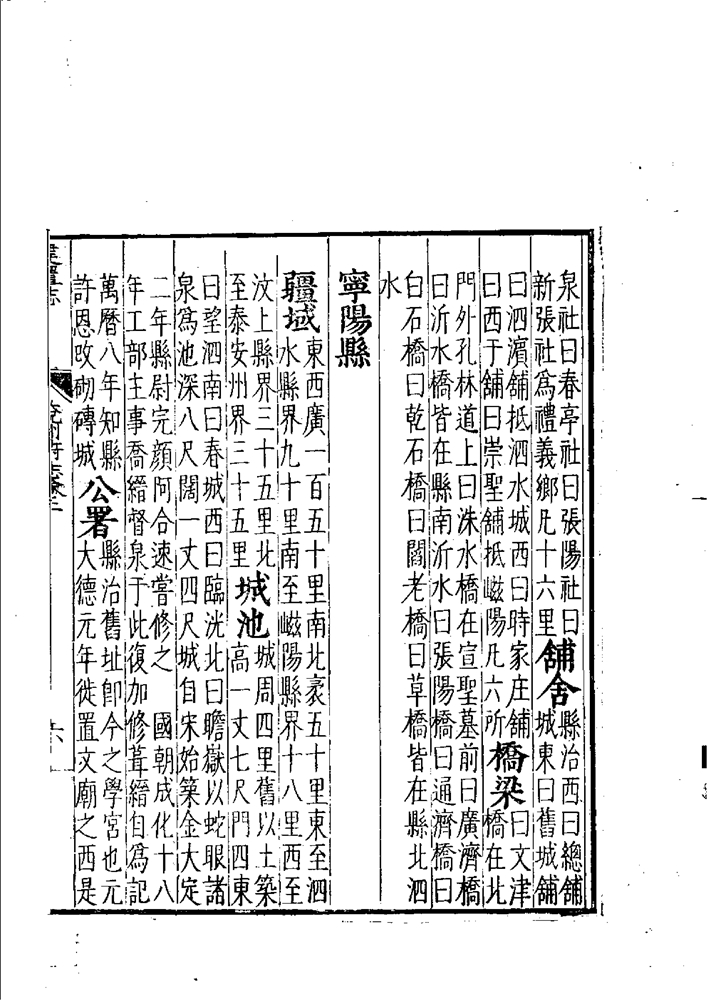 泉社曰春亭社曰張陽社曰
新張社爲禮義鄉凡十六里
舖舍
縣治西曰總舖
城東曰舊城舖
曰泗濱舖抵泗水城西曰時家庄舖
曰西于舖曰崇聖舖抵嵫陽凡六所
橋梁
曰文津
橋在北
門外孔林道上曰洙水橋在宣聖墓前曰廣濟橋
曰沂水橋皆在縣南沂水曰張陽橋曰通濟橋曰
白石橋曰乾石橋曰閻老橋曰草橋皆在縣北泗
水
寧陽縣
疆域
東西廣一百五十里南北袤五十里東至泗
水縣界九十里南至嵫陽縣界十八里西至
汶上縣界三十五里北
至泰安州界三十五里
城池
城周四里舊以土築
高一丈七尺門四東
曰望泗南曰春城西曰臨洸北曰瞻嶽以蛇眼諸
泉爲池深八尺闊一丈四尺城自宋始築金大定
二年縣尉完顏阿合速嘗修之 國朝成化十八
年工部主事喬縉督泉于此復加修葺縉自爲記
萬曆八年知縣
許恩改砌磚城
公署
縣治舊址卽今之學宮也元
大德元年徙置文廟之西是
兗州府志卷二
六